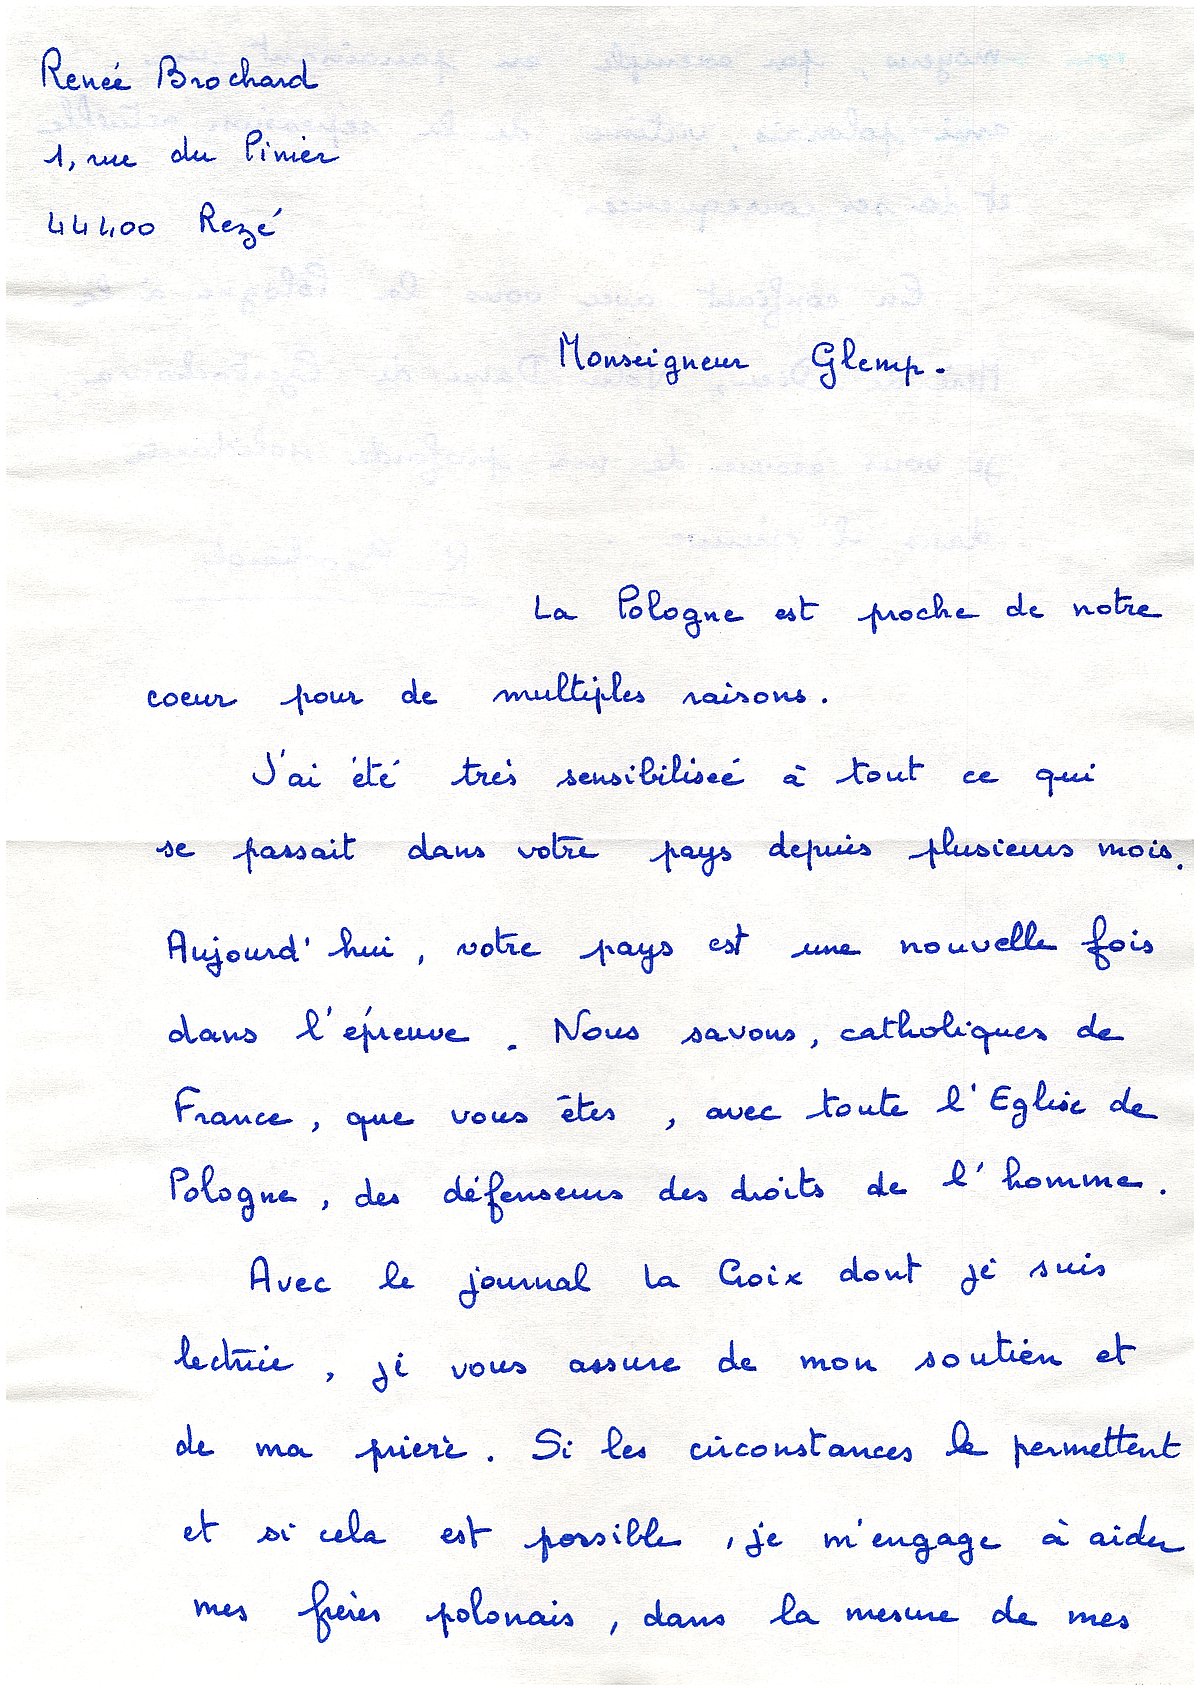 Renée Brochard
1, rue du Pinier
44400 Rezé
Monseigneur Glemp.
La Pologne est proche de notre
coeur pour de multiples raisons.
J'ai été très sensibilisée à tout ce qui
se passait dans votre pays depuis plusieurs mois.
Aujourd'hui, votre pays est une nouvelle fois
dans l'épreuve. Nous savons, catholiques de
France, que vous êtes, avec toute l'Eglise de
Pologne, des défenseurs des droits de l'homme.
Avec le journal La Croix dont je suis
lectrice, je vous assure de mon soutien et
de ma prière. Si les circonstances le permettent
et si cela est possible, je m'engage à aider
mes frères polonais, dans la mesure de mes